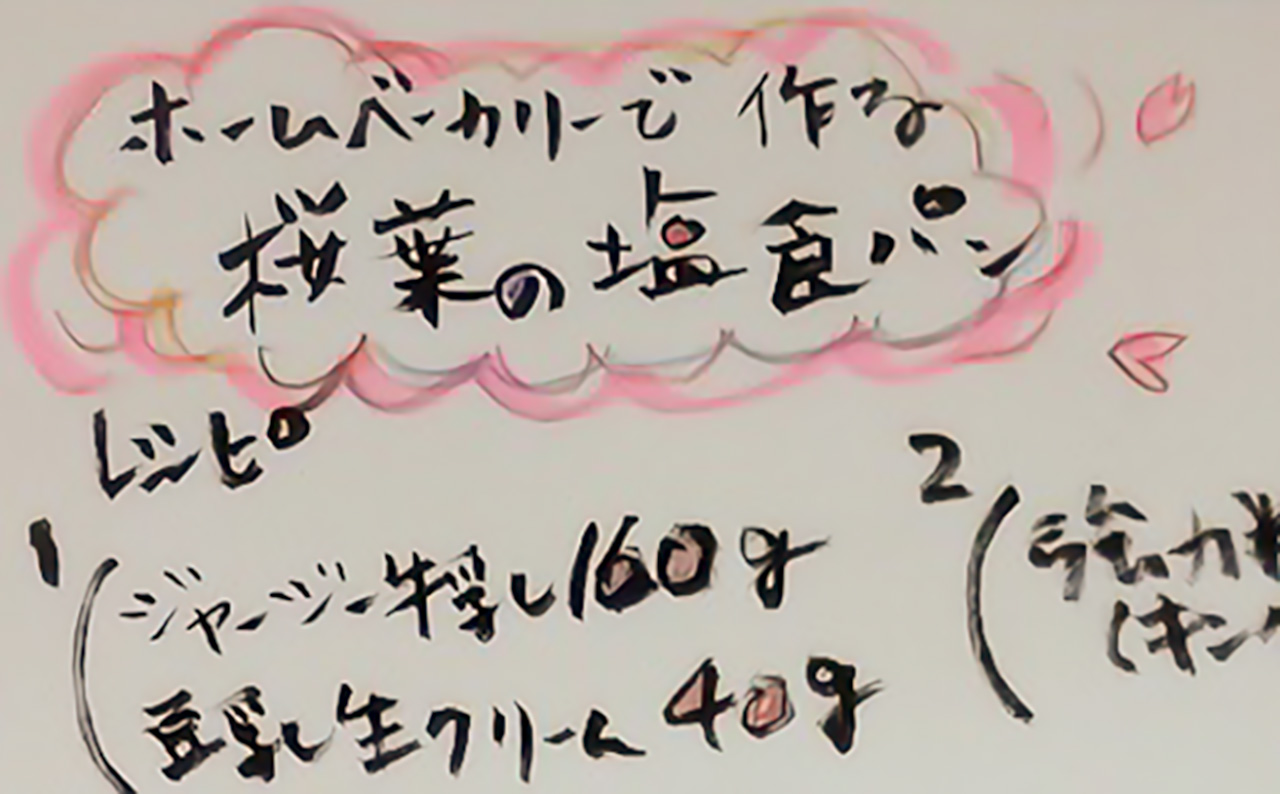 ホームベーカリーで作る
桜葉の塩食パン
レシピ
1
ジャージー牛乳160g
豆乳生クリーム40g
2
強力
(キン